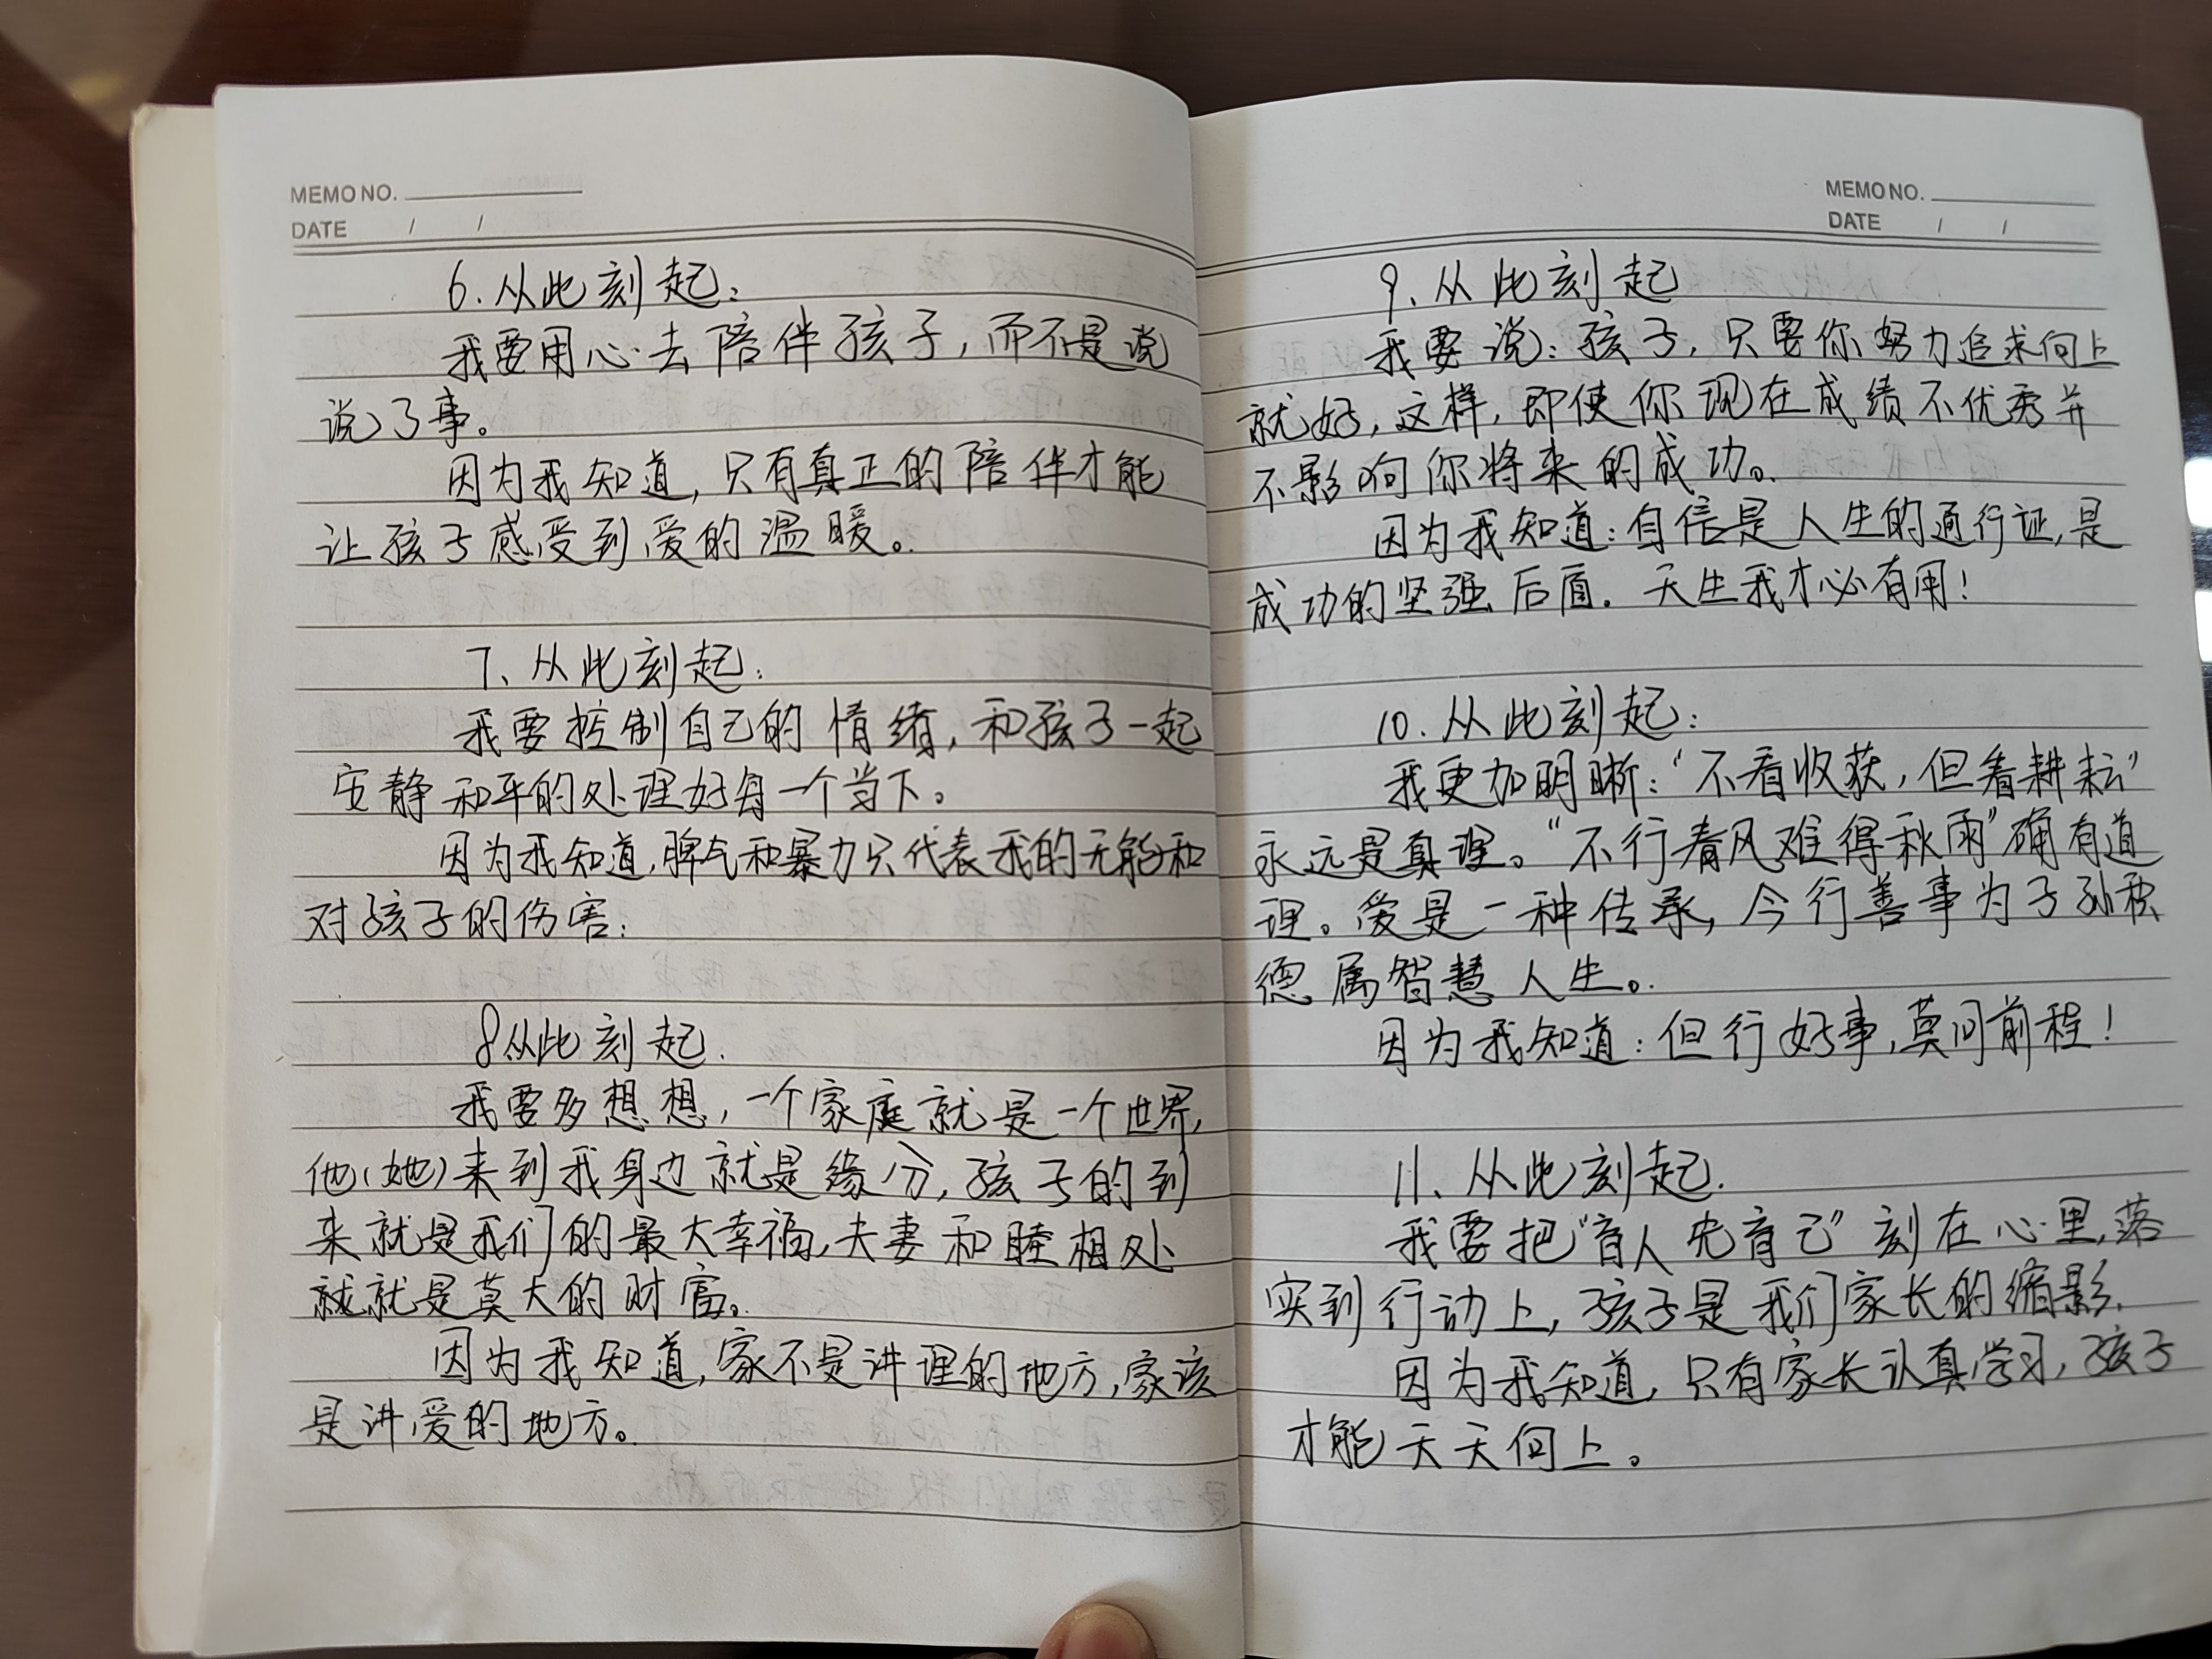 MEMO NO.
DATE / /
6.从此刻起:
我要用心去陪伴孩子,而不是说
说了事。
因为我知道,只有真正的陪伴才能
让孩子感受到爱的温暖。
7、从此刻起:
我要控制自己的情绪,和孩子一起
安静和平的处理好每一个当下。
因为我知道,脾气和暴力只代表我的无能和
对孩子的伤害:
8从此刻起.
我要多想想,一个家庭就是一个世界,
他(她)来到我身边就是缘分,孩子的到
来就是我们的最大幸福,夫妻和睦相处
就就是莫大的财富。
因为我知道,家不是讲理的地方,家该
是讲爱的地方。
MEMO NO.
DATE / /
9、从此刻起
我要说:孩子,只要你努力追求向上
就好,这样,即使你现在成绩不优秀并
不影响你将来的成功。
因为我知道:自信是人生的通行证,是
成功的坚强后盾。天生我才必有用!
10.从此刻起:
我更加明晰:“不看收获,但看耕耘”
永远是真理。“不行春风难得秋雨”确有道
理。爱是一种传承,今行善事为子孙积
德属智慧人生。
因为我知道:但行好事,莫问前程!
11、从此刻起.
我要把“育人先育己”刻在心里,落
实到行动上,孩子是我们家长的缩影.
因为我知道,只有家长认真学习,孩子
才能天天向上。